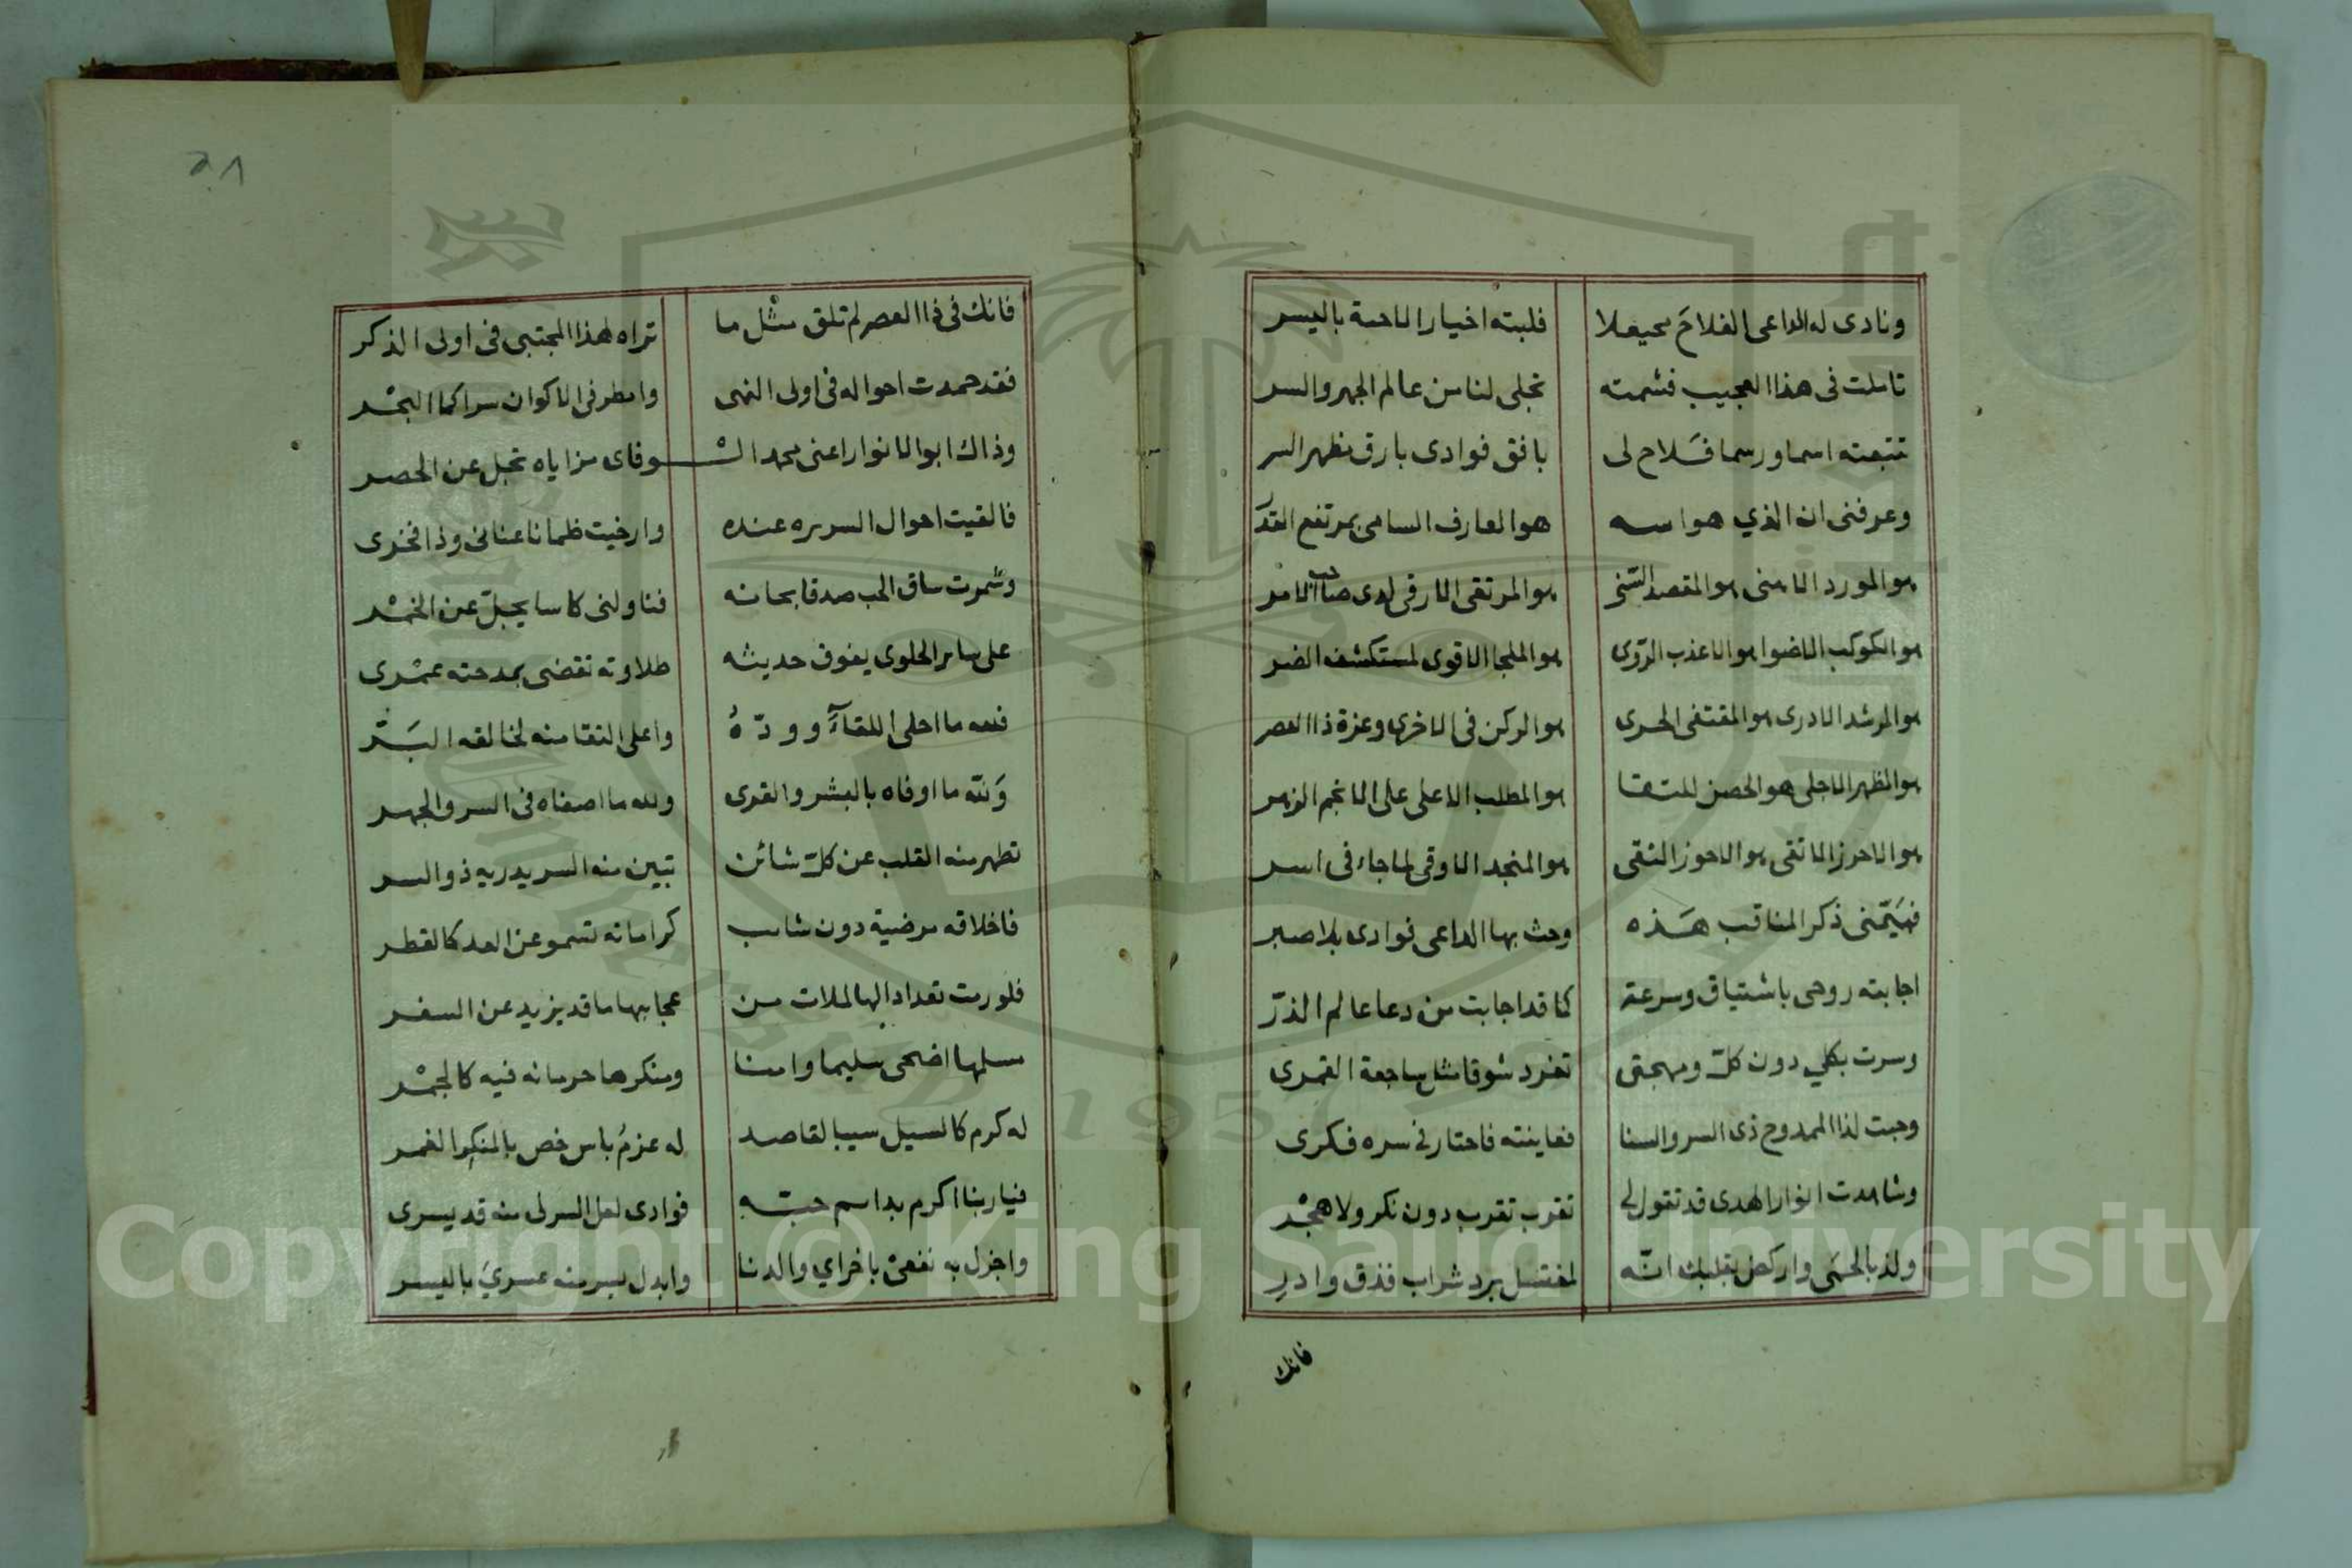 ونادى له الداعى الفلاح بحيعلا فلبته اخيار الاحبة باليسر
تاملت فى هذا العجيب فشمته تجلى لنا من عالم الجهر والسر
تتبعته اسما ورسما فلاح لى بافق فوادى بارق مظهر السر
وعرفنى ان الذي هو اسه هو العارف السامى بمرتفع القدر
هو المورد الاهنى هو المقصد السّنى هو المرتقى الارقى لدى صاحب الامر
هو الكوكب الاضوا هو الاعذب الروى هو الملجا الاقوى لمستكشف الضر
هو المرشد الادرى هو المقتفى الحرى هو الركن فى الاخرى وعزة ذا العصر
هو المظهر الاجلى هو الحصن للتقا هو المطلب الاعلى على الانجم الزهر
هو الاحرز الاتقى هو الاحوز النقى هو المنجد الاوقى لما جاء فى اسر
فهيّمنى ذكر المناقب هذه وحث بها الداعى فوادى بلا صبر
اجابته روحى باشتياق وسرعة كما قد اجابت من دعا عالم الذرّ
وسرت بكلي دون كلّ ومهجتى تغرد شوقا مثل ساجعة القمرى
وجبت لذا الممدوح ذى السر والسنا فعاينته فاحتار فى سره فكرى
وشاهدت انوار الهدى قد تقول لى تقرب تقرب دون نكر ولا هجْر
ولذ بالحمى واركض بقلبك انّه لمغتسل برد شراب فذق وادر
فانك
فانك فى ذا العصر لم تلق مثل ما تراه لهذا المجتبى فى اولى الذكر
فقد حمدت احواله فى اولى النهى وامطر فى الاكوان سرا كما البحْر
وذاك ابو الانوار اعنى محمد الشوفاى مزاياه تجل عن الحصر
فالقيت احوال السريره عنده وارخيت ظمانا عنانى وذا فخرى
وشمرت ساق الحب صدقا بحانه فناولنى كاسا يجلّ عن الخمْر
على ساير الحلوى يفوق حديثه طلاوته تقضى بمدحته عمْرى
فلله ما احلى اللقآء وودّهُ واعلى التقا منه لخالقه البَرّ
وَلله ما اوفاه بالبشر والقرى ولله ما اصفاه فى السر والجهر
تطهر منه القلب عن كلّ شائن تبين منه السر يدريه ذو السر
فاخلاقه مرضية دون شايب كراماته تسمو عن العد كالقطر
فلو رمت تعدادا لها لملات من عجايبها ما قد يزيد عن السفر
مسلمها اضحى سليما وامنا ومنكرها حرمانه فيه كالجمْر
له كرم كالسيل سيبا لقاصد له عزمُ باس خص بالمنكر الغمر
فيا ربنا اكرم بداسم حبّه فوادى لعل السر لى منه قد يسرى
واجزل به نفعى باخراي والدنا وابدل بسر منه عسريَ باليسر